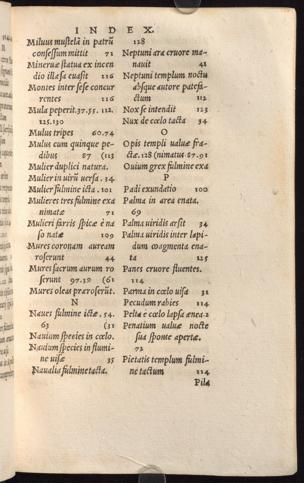 INDEX.
Miluus mustelã in patrũ
consessum mittit 71
Mineruæ statua ex incen
dio illæsa euasit 116
Montes inter sese concur
rentes 116
Mula peperit.37.55.112.
125.130
Mulus tripes 60.74
Mulus cum quinque pe-
dibus 87 (113
Mulier duplici natura.
Mulier in uirũ uersa. 34
Mulier fulmine icta. 101
Mulieres tres fulmine exa
nimatæ 71
Mulieri farris spicæ è na
so natæ 109
Mures coronam auream
roserunt 44
Mures sacrum aurum ro
serunt 97.38 (61
Mures oleas præroserũt.
N
Naues fulmine ictæ. 54.
63 (31
Nauium species in cœlo.
Nauium species in flumi-
ne uisæ 35
Naualia fulmine tacta.
128
Neptuni ara cruore ma-
nauit 41
Neptuni templum noctu
absque autore patefa-
ctum 112
Nox se intendit 123
Nux de cœlo tacta 34
O
Opis templi ualuæ fra-
ctæ.128 (nimatus 87.91
Ouium grex fulmine exa
P
Padi exundatio 100
Palma in area enata.
69
Palma uiridis arsit 34
Palma uiridis inter lapi-
dum coagmenta ena-
ta 125
Panes cruore fluentes.
114
Parma in cœlo uisa 31
Pecudum rabies 114
Pelta è cœlo lapsa ænea 2
Penatium ualuæ nocte
sua sponte apertæ.
72
Pietatis templum fulmi-
ne tactum 114
Pila